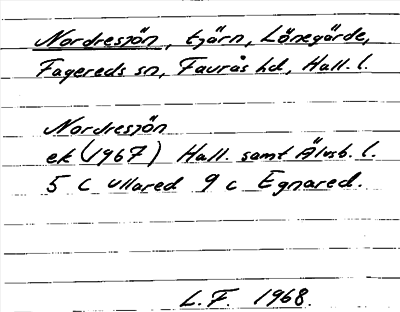 Nordresjön, tjärn, Lönegärde,
Fagereds sn, Faurås hd, Hall. l.
Nordresjön
ek (1967) Hall. samt Älvsb. l.
5 C Ullared 9 c Egnared.
L.F. 1968.